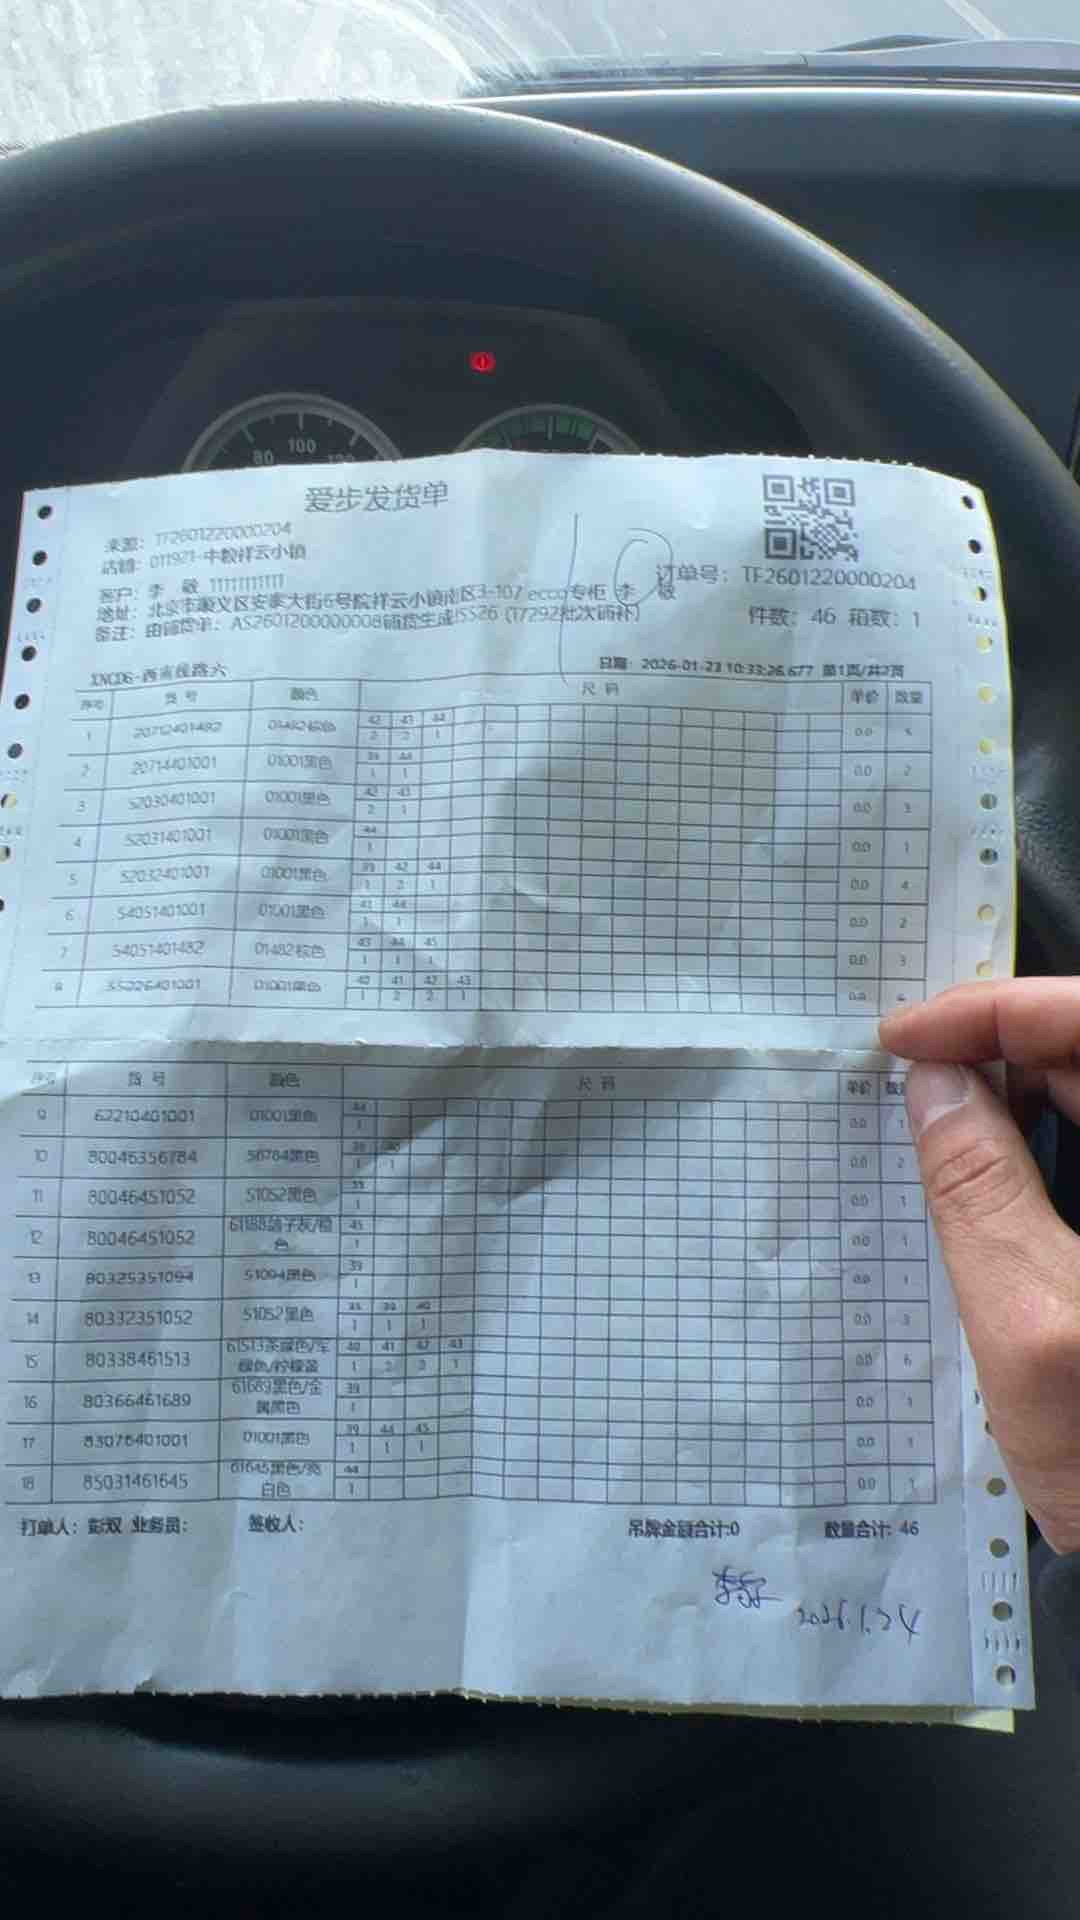 80 100 120
爱步发货单
来源: TF2601220000204
店铺: 011921-中数祥云小镇
订单号: TF2601220000204
客户: 李 敬 11111111111
地址: 北京市顺义区安泰大街6号院祥云小镇南区3-107 ecco专柜 李 敬
件数: 46 箱数: 1
备注: 由铺货单: AS2601200000008铺货生成!5526 (17292批次铺补)
XNCD6-西南线路六
日期: 2026-01-23 10:33:26.677 第1页/共2页
序号 货 号 颜色 尺 码 单价 数量
42 43 44
1 20712401482 01482棕色 2 2 1 0.0 5
39 44
2 20714401001 01001黑色 1 1 0.0 2
42 43
3 52030401001 01001黑色 2 1 0.0 3
44
4 52031401001 01001黑色 1 0.0 1
39 42 44
5 52032401001 01001黑色 1 2 1 0.0 4
41 44
6 54051401001 01001黑色 1 1 0.0 2
43 44 45
7 54051401482 01482棕色 1 1 1 0.0 3
40 41 42 43
8 55226401001 01001黑色 1 2 2 1 0.0 6
序号 货 号 颜色 尺 码 单价 数量
44
9 62210401001 01001黑色 1 0.0 1
39 40
10 80046356784 56784黑色 1 1 0.0 2
11 80046451052 51052黑色 1 0.0 1
45
12 80046451052 61188鸽子灰/橙色 1 0.0 1
39
13 80325351094 51094黑色 1 0.0 1
39 40
14 80332351052 51052黑色 1 1 1 0.0 3
40 41 42 43
15 80338461513 61513茶绿色/军绿色/柠檬黄 1 2 2 1 0.0 6
39
16 80366461689 61689黑色/金属黑色 1 0.0 1
39 44 45
17 83076401001 01001黑色 1 1 1 0.0 3
44
18 85031461645 61645黑色/亮白色 1 0.0 1
打单人: 彭双 业务员: 签收人: 吊牌金额合计:0 数量合计: 46
2026.1.24